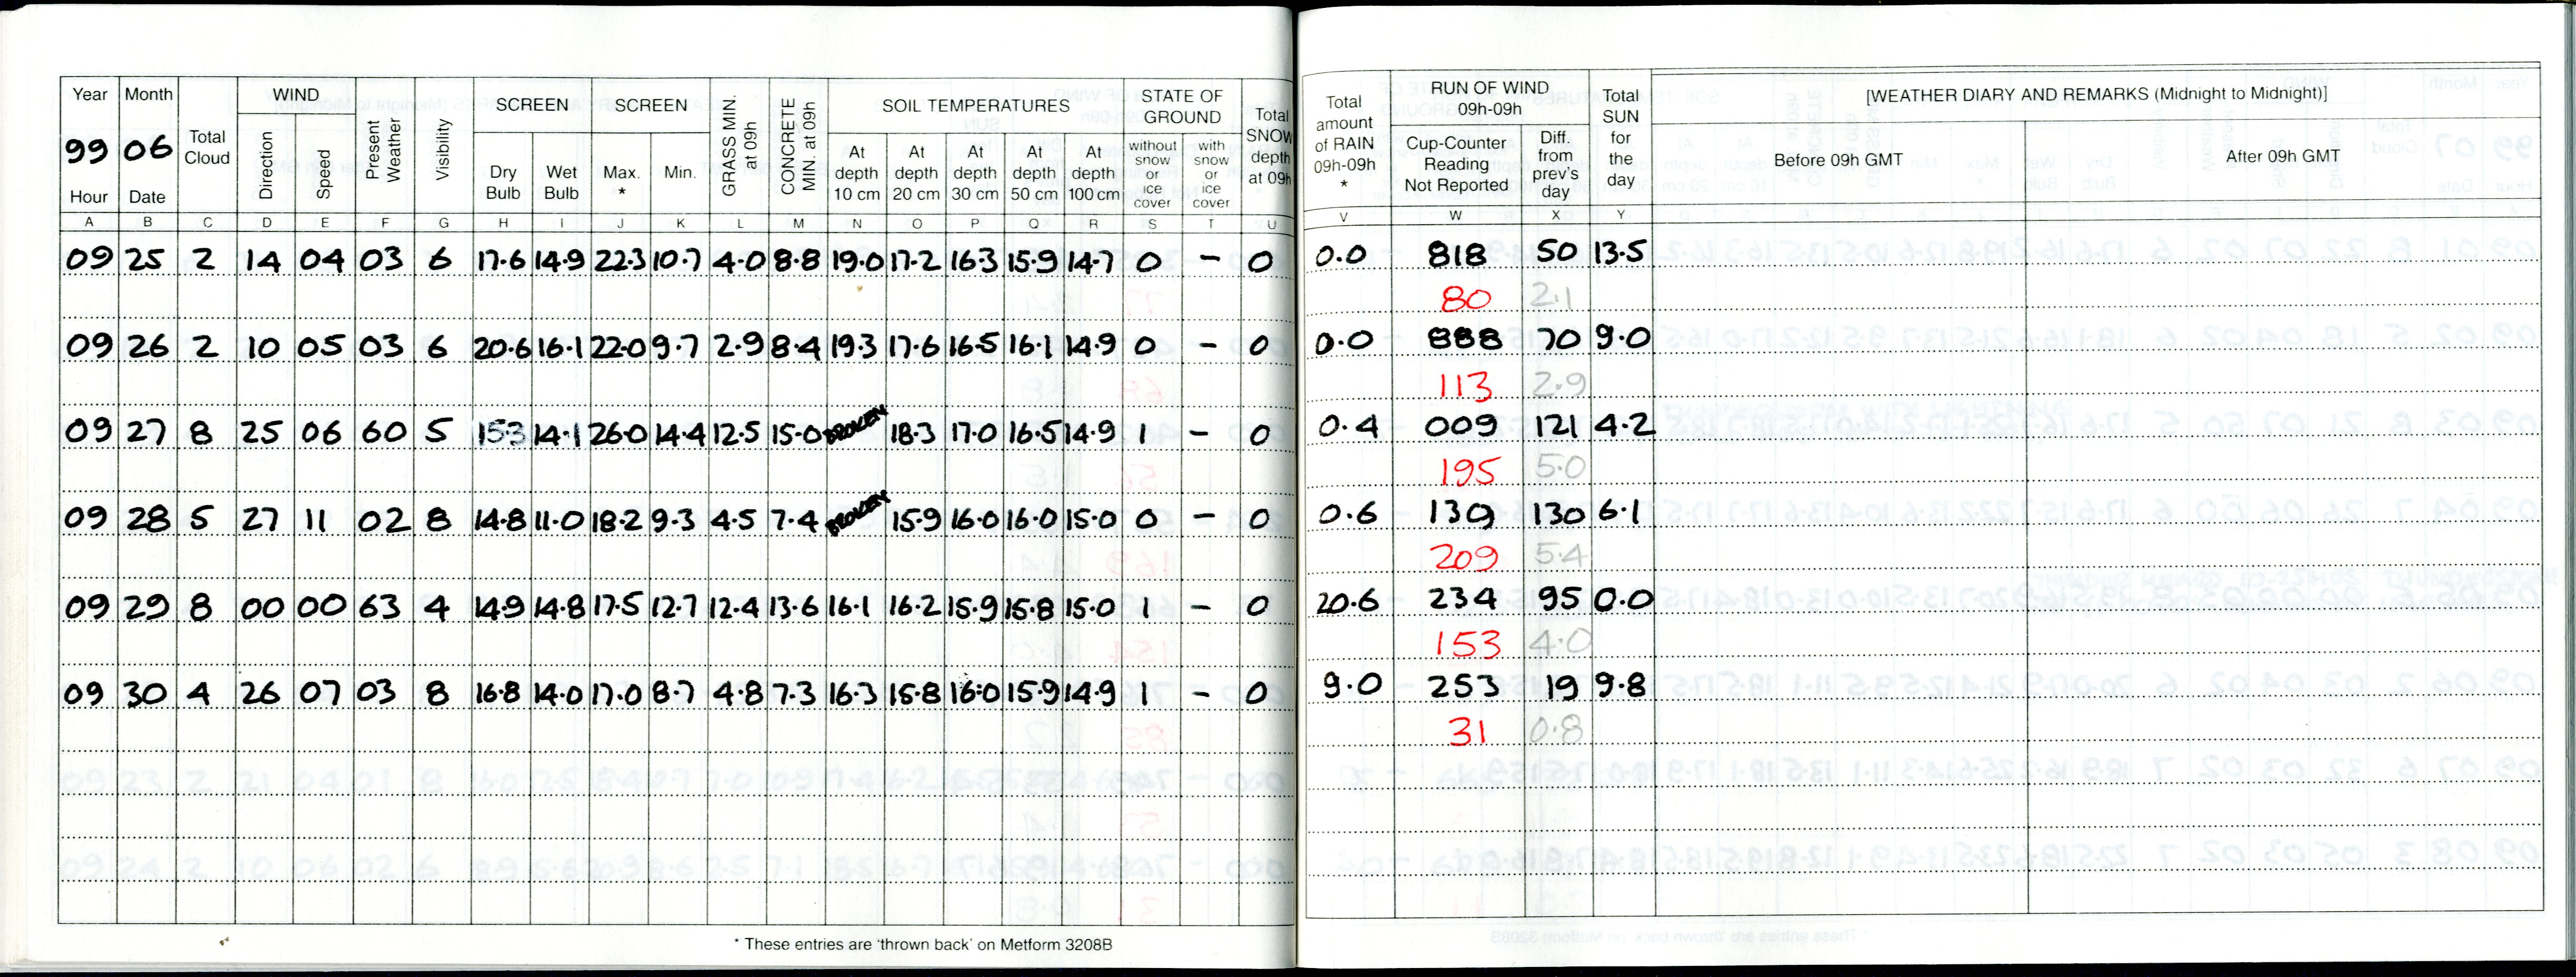 Year Month Total Cloud WIND Present Weather Visibility SCREEN SCREEN GRASS MIN. at 09h CONCRETE MIN. at 09h SOIL TEMPERATURES STATE OF GROUND Total SNOW depth at 09h Total amount of RAIN 09h-09h * RUN OF WIND 09h-09h Total SUN for the day [WEATHER DIARY AND REMARKS (Midnight to Midnight)]
99 06 Direction Speed Dry Bulb Wet Bulb Max. * Min. At depth 10 cm At depth 20 cm At depth 30 cm At depth 50 cm At depth 100 cm without snow or ice cover with snow or ice cover Cup-Counter Reading Not Reported Diff. from prev's day Before 09h GMT After 09h GMT
Hour Date
A B C D E F G H I J K L M N O P Q R S T U V W X Y
09 25 2 14 04 03 6 17.6 14.9 22.3 10.7 4.0 8.8 19.0 17.2 16.3 15.9 14.7 0 – 0 0.0 818 50 13.5
80 2.1
09 26 2 10 05 03 6 20.6 16.1 22.0 9.7 2.9 8.4 19.3 17.6 16.5 16.1 14.9 0 – 0 0.0 888 70 9.0
113 2.9
09 27 8 25 06 60 5 15.3 14.1 26.0 14.4 12.5 15.0 BROKEN 18.3 17.0 16.5 14.9 1 – 0 0.4 009 121 4.2
195 5.0
09 28 5 27 11 02 8 14.8 11.0 18.2 9.3 4.5 7.4 BROKEN 15.9 16.0 16.0 15.0 0 – 0 0.6 139 130 6.1
209 5.4
09 29 8 00 00 63 4 14.9 14.8 17.5 12.7 12.4 13.6 16.1 16.2 15.9 15.8 15.0 1 – 0 20.6 234 95 0.0
153 4.0
09 30 4 26 07 03 8 16.8 14.0 17.0 8.7 4.8 7.3 16.3 15.8 16.0 15.9 14.9 1 – 0 9.0 253 19 9.8
31 0.8
* These entries are 'thrown back' on Metform 3208B